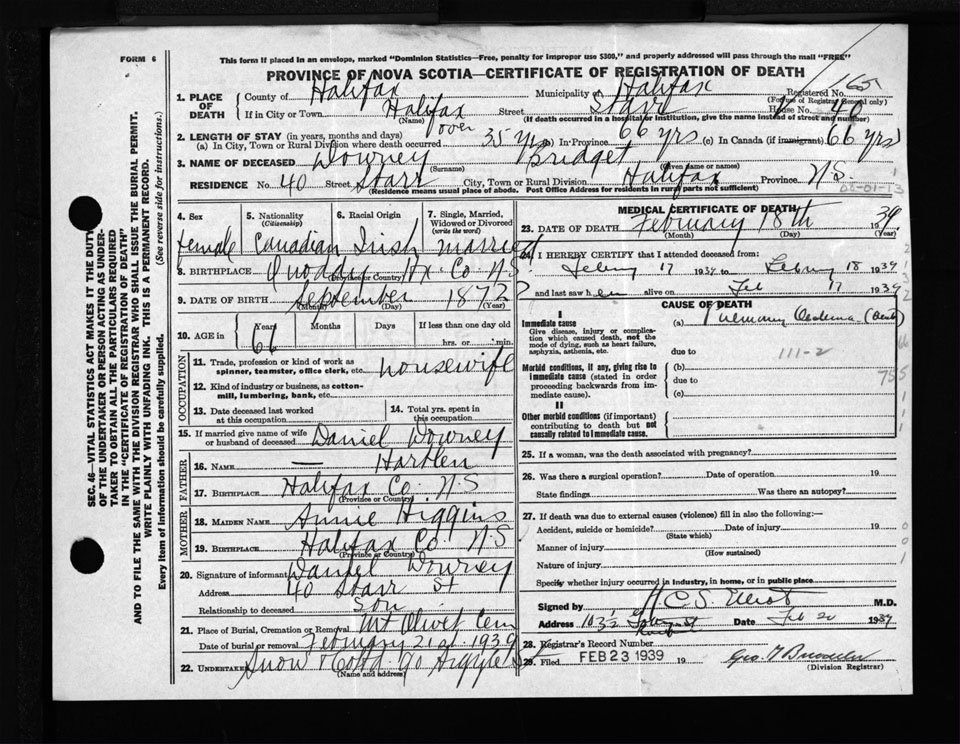 FORM 6
This form if placed in an envelope, marked "Dominion Statistics—Free, penalty for improper use $300," and properly addressed will pass through the mail "FREE"
PROVINCE OF NOVA SCOTIA—CERTIFICATE OF REGISTRATION OF DEATH
SEC. 46—VITAL STATISTICS ACT MAKES IT THE DUTY
OF THE UNDERTAKER OR PERSON ACTING AS UNDER-
TAKER TO OBTAIN ALL THE PARTICULARS REQUIRED
IN THE "CERTIFICATE OF REGISTRATION OF DEATH"
AND TO FILE THE SAME WITH THE DIVISION REGISTRAR WHO SHALL ISSUE THE BURIAL PERMIT.
WRITE PLAINLY WITH UNFADING INK. THIS IS A PERMANENT RECORD.
Every item of information should be carefully supplied. (See reverse side for instructions.)
1. PLACE OF DEATH County of Halifax Municipality of Halifax Registered No. 165
(For use of Registrar General only)
If in City or Town Halifax (Name) Street Starr House No. 40
(If death occurred in a hospital or institution, give the name instead of street and number)
2. LENGTH OF STAY (in years, months and days)
(a) In City, Town or Rural Division where death occurred over 35 yrs (b) In Province 66 yrs (c) In Canada (if immigrant) 66 yrs
3. NAME OF DECEASED Downey (Surname) Bridget (Given name or names)
RESIDENCE No. 40 Street Starr City, Town or Rural Division Halifax Province N.S.
(Residence means usual place of abode. Post Office Address for residents in rural parts not sufficient)
05-01-13
4. Sex female
5. Nationality (Citizenship) Canadian
6. Racial Origin Irish
7. Single, Married, Widowed or Divorced (write the word) married
8. BIRTHPLACE Quoddy Hx. Co. N.S. (Province or Country)
9. DATE OF BIRTH September 1872? (Month) (Day)
10. AGE in Years 66 Months Days If less than one day old hrs. or min.
OCCUPATION
11. Trade, profession or kind of work as spinner, teamster, office clerk, etc. housewife
12. Kind of industry or business, as cotton-mill, lumbering, bank, etc.
13. Date deceased last worked at this occupation
14. Total yrs. spent in this occupation
15. If married give name of wife or husband of deceased Daniel Downey
FATHER
16. NAME — Hartlen
17. BIRTHPLACE Halifax Co. N.S (Province or Country)
MOTHER
18. MAIDEN NAME Annie Higgins
19. BIRTHPLACE Halifax Co. N.S (Province or Country)
20. Signature of informant Daniel Downey
Address 40 Starr St
Relationship to deceased Son
21. Place of Burial, Cremation or Removal Mt Olivet Cem
Date of burial or removal February 21st 1939
22. UNDERTAKER Snow & Co Ltd 90 Argyle St
(Name and address)
MEDICAL CERTIFICATE OF DEATH
23. DATE OF DEATH February 18th 1939
(Month) (Day) (Year)
24. I HEREBY CERTIFY that I attended deceased from:
Febry 17 1939 to Febry 18 1939
and last saw her alive on Feb 17 1939
CAUSE OF DEATH
I
Immediate cause
Give disease, injury or complication which caused death, not the mode of dying, such as heart failure, asphyxia, asthenia, etc.
(a) Pulmonary Oedema (Acute)
due to
111-2
Morbid conditions, if any, giving rise to immediate cause (stated in order proceeding backwards from immediate cause).
(b)
due to
(c)
755
II
Other morbid conditions (if important) contributing to death but not causally related to immediate cause.
25. If a woman, was the death associated with pregnancy?
26. Was there a surgical operation? Date of operation 19
State findings Was there an autopsy?
27. If death was due to external causes (violence) fill in also the following:—
Accident, suicide or homicide? Date of injury 19
(State which)
Manner of injury
(How sustained)
Nature of injury
Specify whether injury occurred in industry, in home, or in public place
Signed by M.D.
Address Date Feb 20 1939
28. Registrar's Record Number
29. Filed FEB 23 1939 19
(Division Registrar)